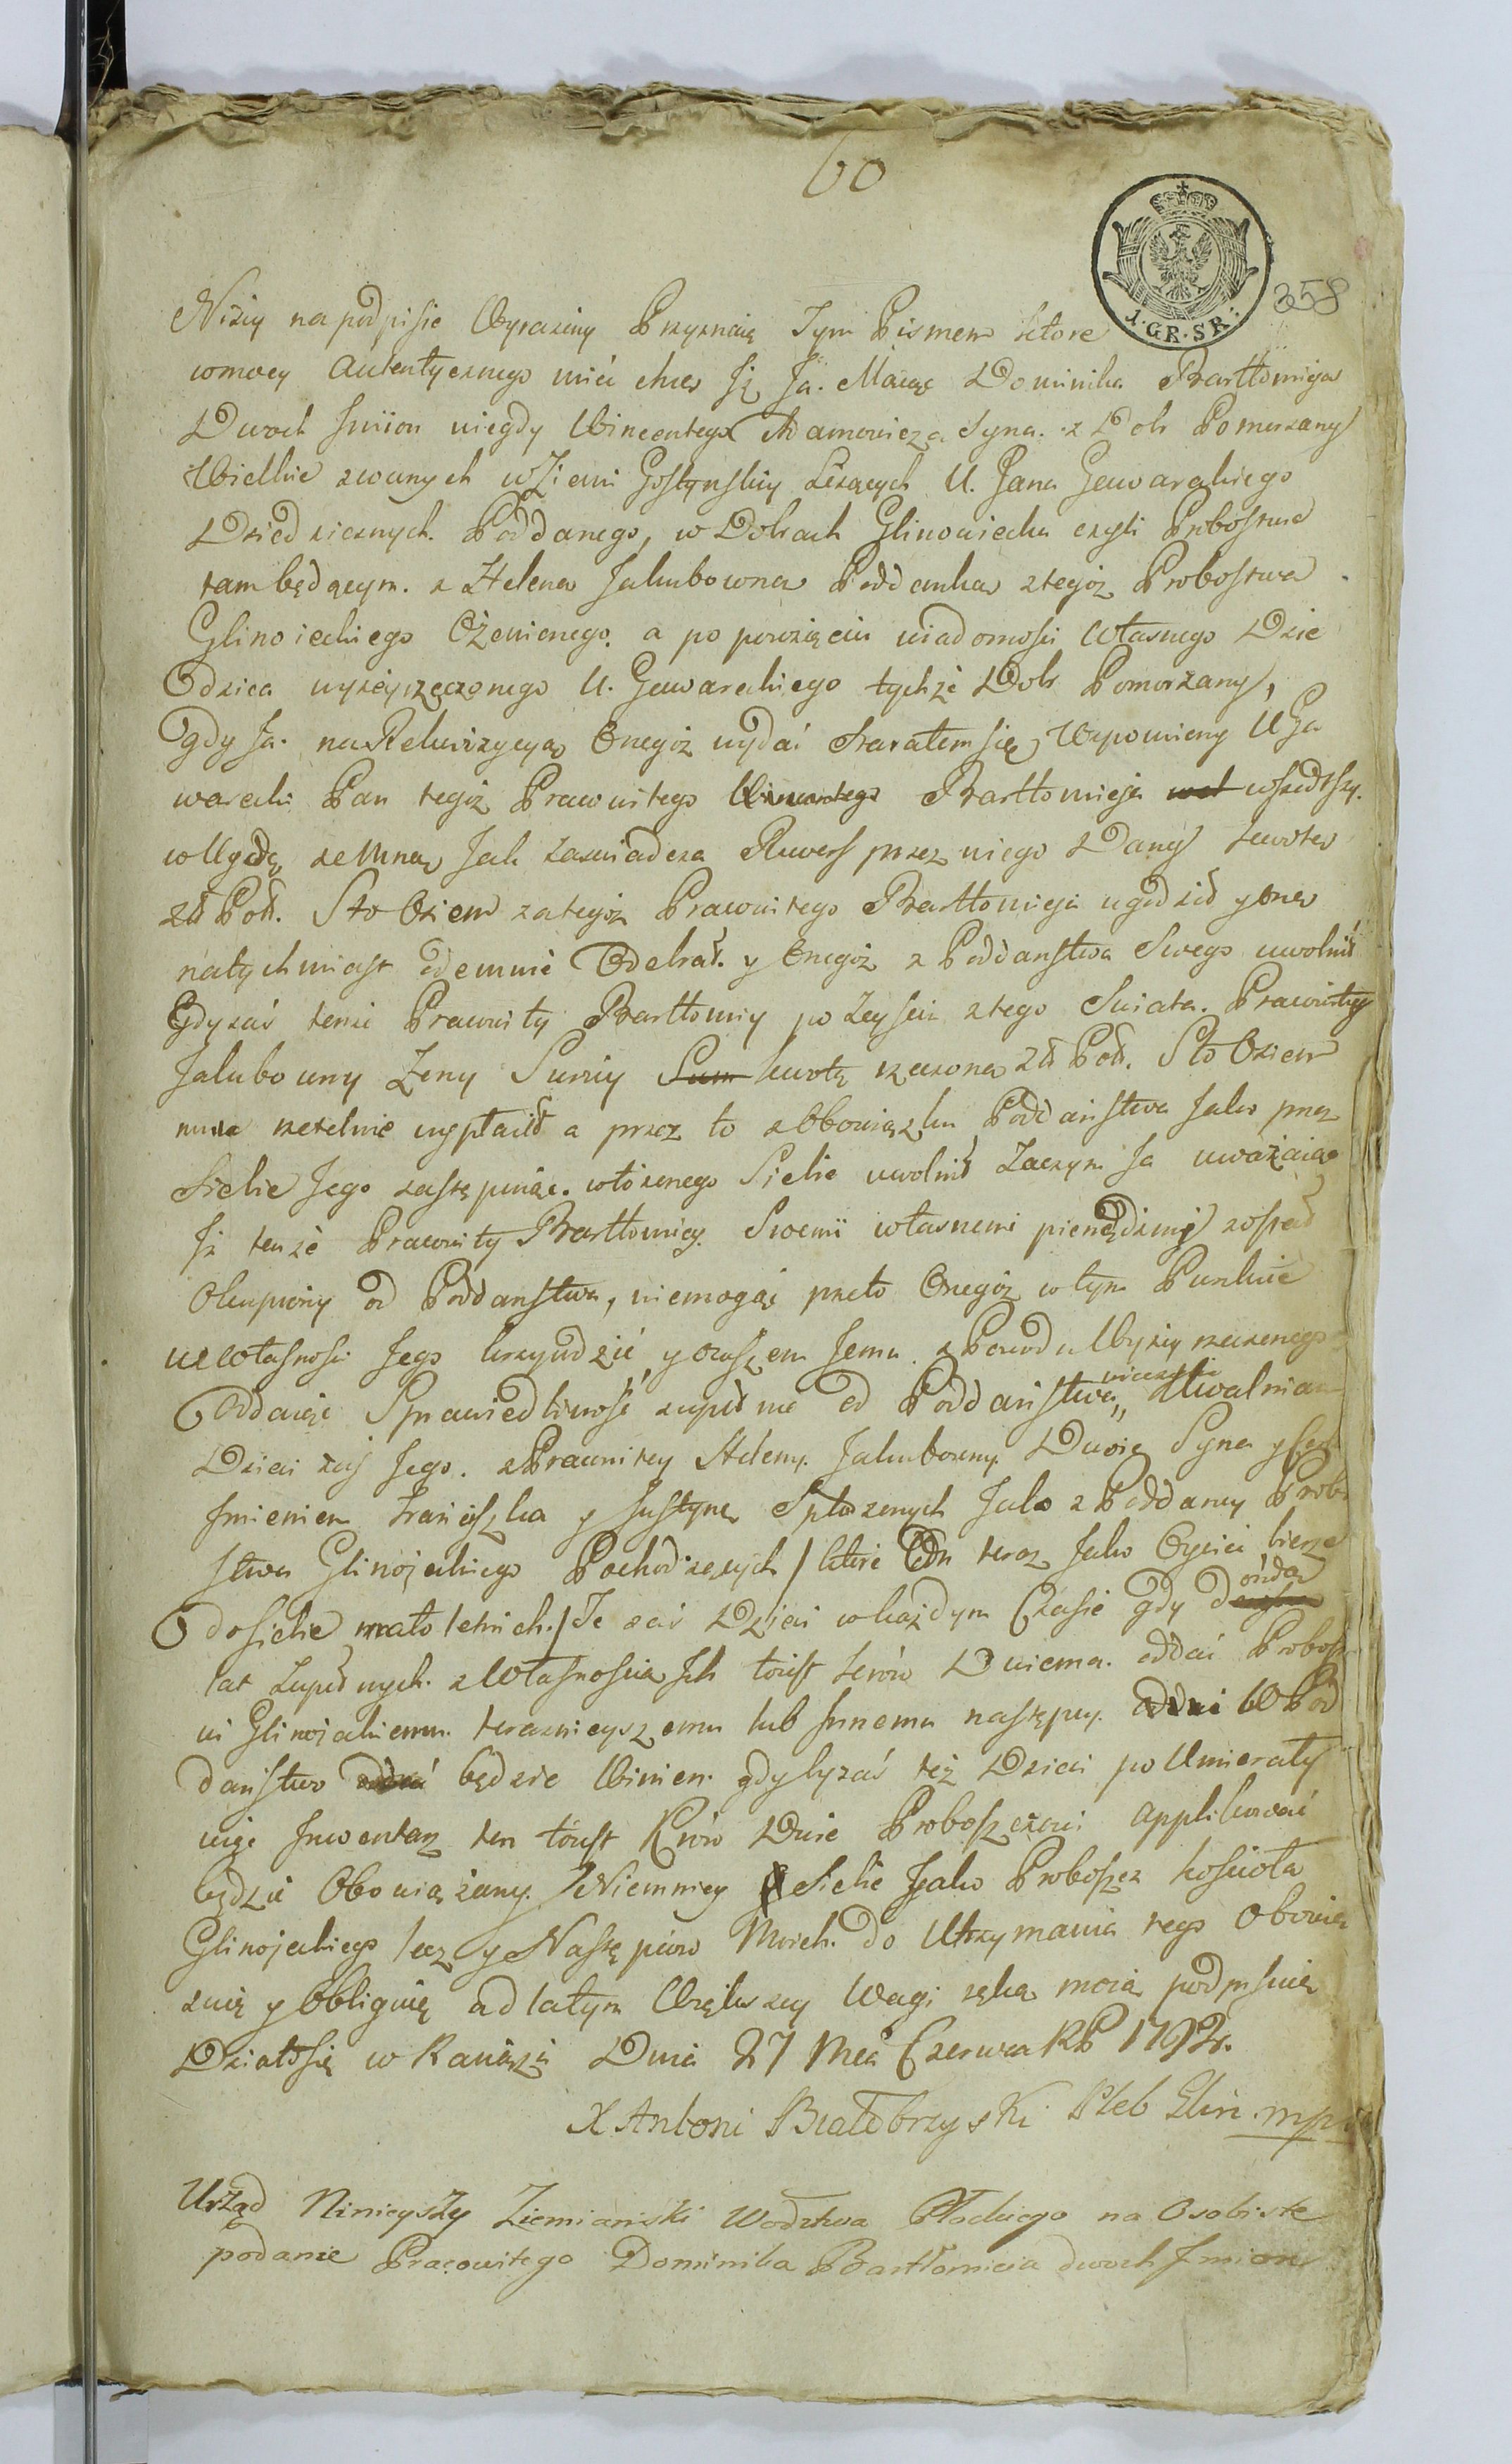 60
1. GR. SR.
358
Niżey na podpisie Wyrażony Przyznaię Tym Pismem ktore
wmocy Autentycznego mieć chcę Jż Ja. Maiąc Dominika Bartłomieja
Dwoch Jmion niegdy Wincentego Adamowicza Syna. z Dobr Pomorzany
Wielkie zwanych w Ziemi Gostynskiy Leżących U. Jana Gawareckiego
Dziedzicznych. Poddanego, w Dobrach Glinowiecku czyli Probostwie
tam będącym. z Heleną Jakubowną Poddanką ztegoż Probostwa
Glinoieckiego Ożenionego. a po powzięciu wiadomości Własnego Dzie
dzica wyżeyrzeczonego U. Gawareckiego tychże Dobr Pomorzany,
gdy Ja. na Rekwizycyą Onegoż wydać starałem się, Wspomniony U Ga
warecki Pan tegoż Pracowitego Wincentego Bartłomieja wszedłszy.
w Ugodę ze Mną Jak zaswiadcza Rewers przez niego Dany kwotę
zł Pol. Sto Osiem zategoż Pracowitego Bartłomieja ugodził y oną
natychmiast odemnie Odebrał. y Onegoż z Poddanstwa Swego uwolnił
Gdy zaś tenże Pracowity Bartłomiy po Zeyściu ztego Swiata. Pracowitey
Jakubowny Żony Swoiy Sum kwotę rzeczoną zł Pol. Sto Osiem
mnie rzetelnie wypłacił a przez to z Obowiązku Poddaństwa Jako przez
siebie Jego zastępuiąc. włożonego Siebie uwolnił Zaczym Ja uważaiąc
Jż tenże Pracowity Bartłomiey. Swemi własnemi pieniędzmi został
Okupiony od Poddanstwa, niemogąc przeto Onegoż w tym Punkcie
we własności Jego krzywdzić, y owszem Jemu z Powodu Wyżey rzeczonego
Oddaiąc Sprawiedliwość zupełnie od Poddaństwa wiecznie Uwalniam
Dzieci zaś Jego. z Pracowitey Heleny. Jakubowny Dwoie Syna y
Jmieniem Franciszka y Justynę Spłodzonych Jako z Poddaney Probo
stwa Glinojeckiego Pochodzących / ktore On teraz Jako Oyciec bierze
do siebie małoletnich. / Te zaś Dzieci w każdym Czasie gdy dóydą
lat Zupełnych. z Własnością Jch toiest krów Dwiema. oddać Probosz
wi Glinojeckiemu. teraznieyszemu lub Jnnemu następcy. W Pod
daństwo będzie Winien. gdyby zaś też Dzieci po Umierały
więc Jnwentarz ten toiest Krów Dwie Proboszczowi applikować
będzie Obowiązany. Niemniey Siebie Jako Proboszcz kościoła
Glinojeckiego lecz y Następców Moich. do Utrzymania tego Obowią
zuię y Obliguię ad latym Większey Wagi ręką moią podpisuię
Działo się w Kaniży Dnia 27 Mca Czerwca RP 1792.
X Antoni Białobrzyski Pleb Glin. mp
Urząd Ninieyszy Ziemiański Wodztwa Płockiego na Osobiste
podanie Pracowitego Dominika Bartłomieia dwoch Jmion